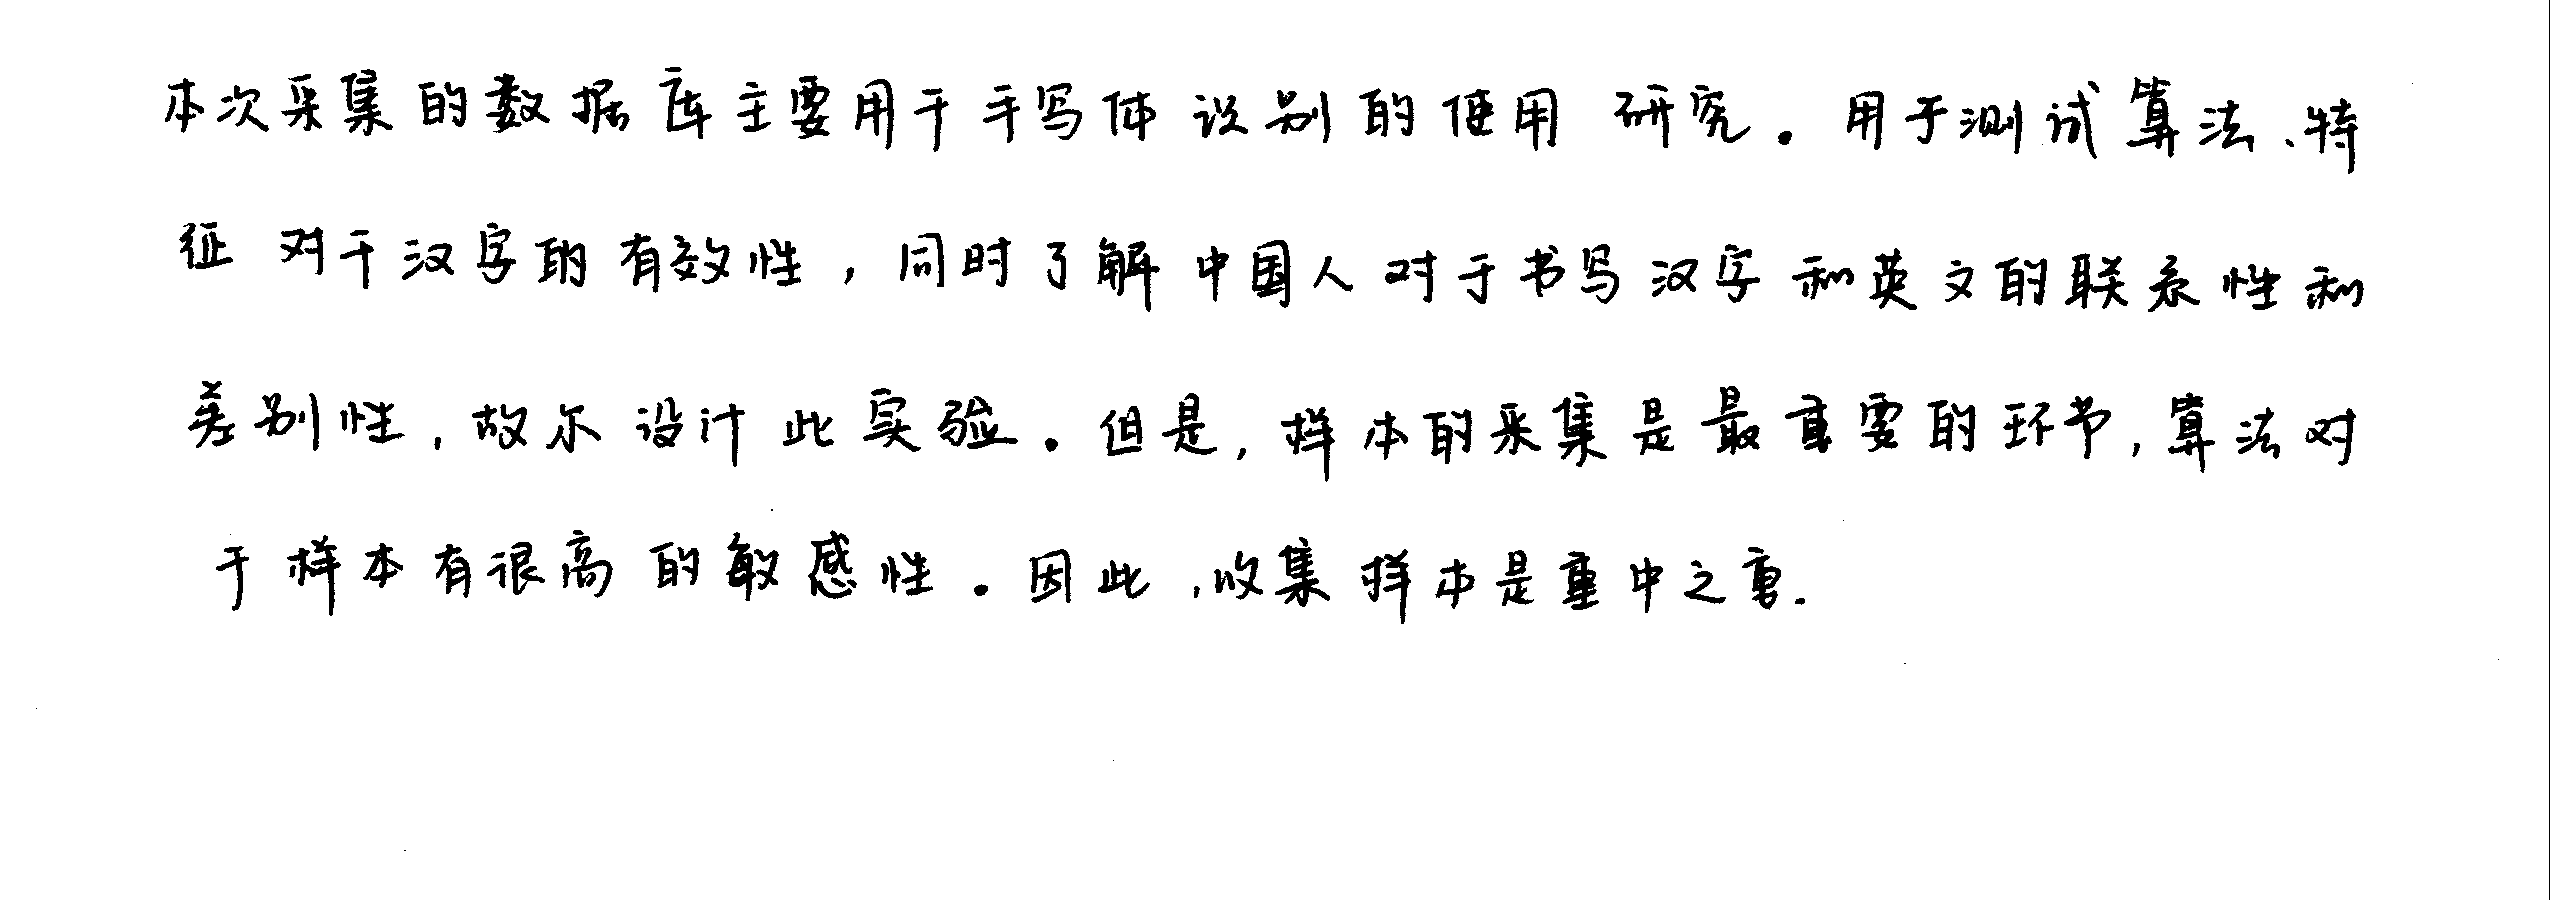 本次采集的数据库主要用于手写体识别的使用研究。用于测试算法、特
征对于汉字的有效性，同时了解中国人对于书写汉字和英文的联系性和
差别性，故尔设计此实验。但是，样本的采集是最重要的环节，算法对
于样本有很高的敏感性。因此，收集样本是重中之重.